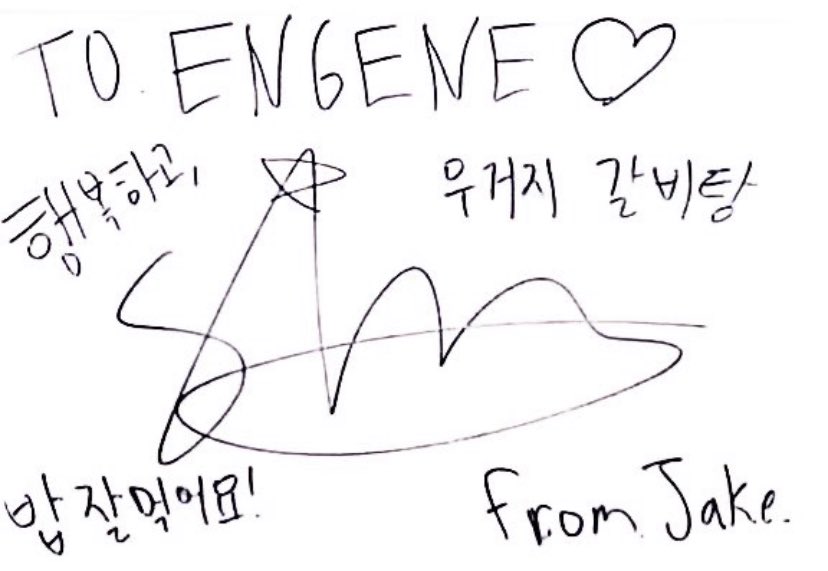 TO. ENGENE ♡
행복하고,
우거지 갈비탕
밥 잘먹어요!
from. Jake.